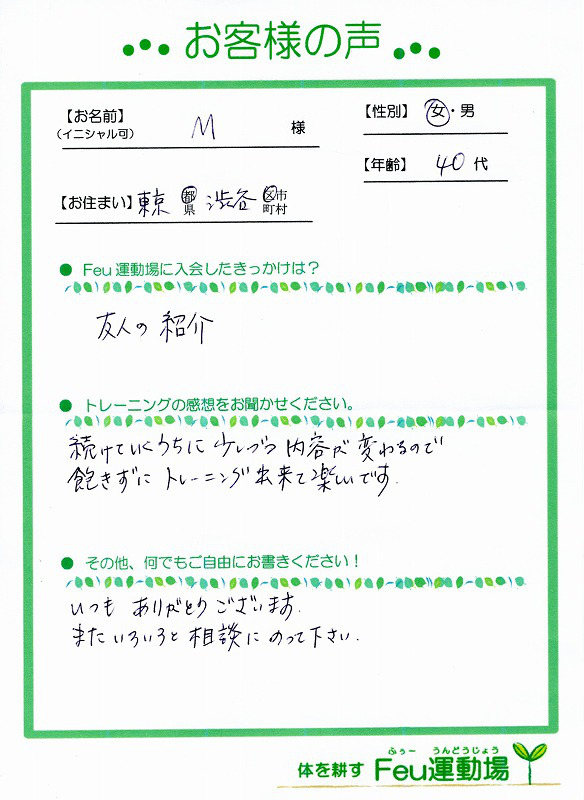 お客様の声
【お名前】
(イニシャル可)
M 様
【性別】 女・男
【年齢】 40代
【お住まい】東京 都県 渋谷 区市町村
● Feu運動場に入会したきっかけは？
友人の紹介
● トレーニングの感想をお聞かせください。
続けていくうちに少しづつ内容が変わるので
飽きずにトレーニング出来て楽しいです.
● その他、何でもご自由にお書きください！
いつもありがとうございます.
またいろいろと相談にのって下さい.
ふぅー うんどうじょう
体を耕す Feu運動場